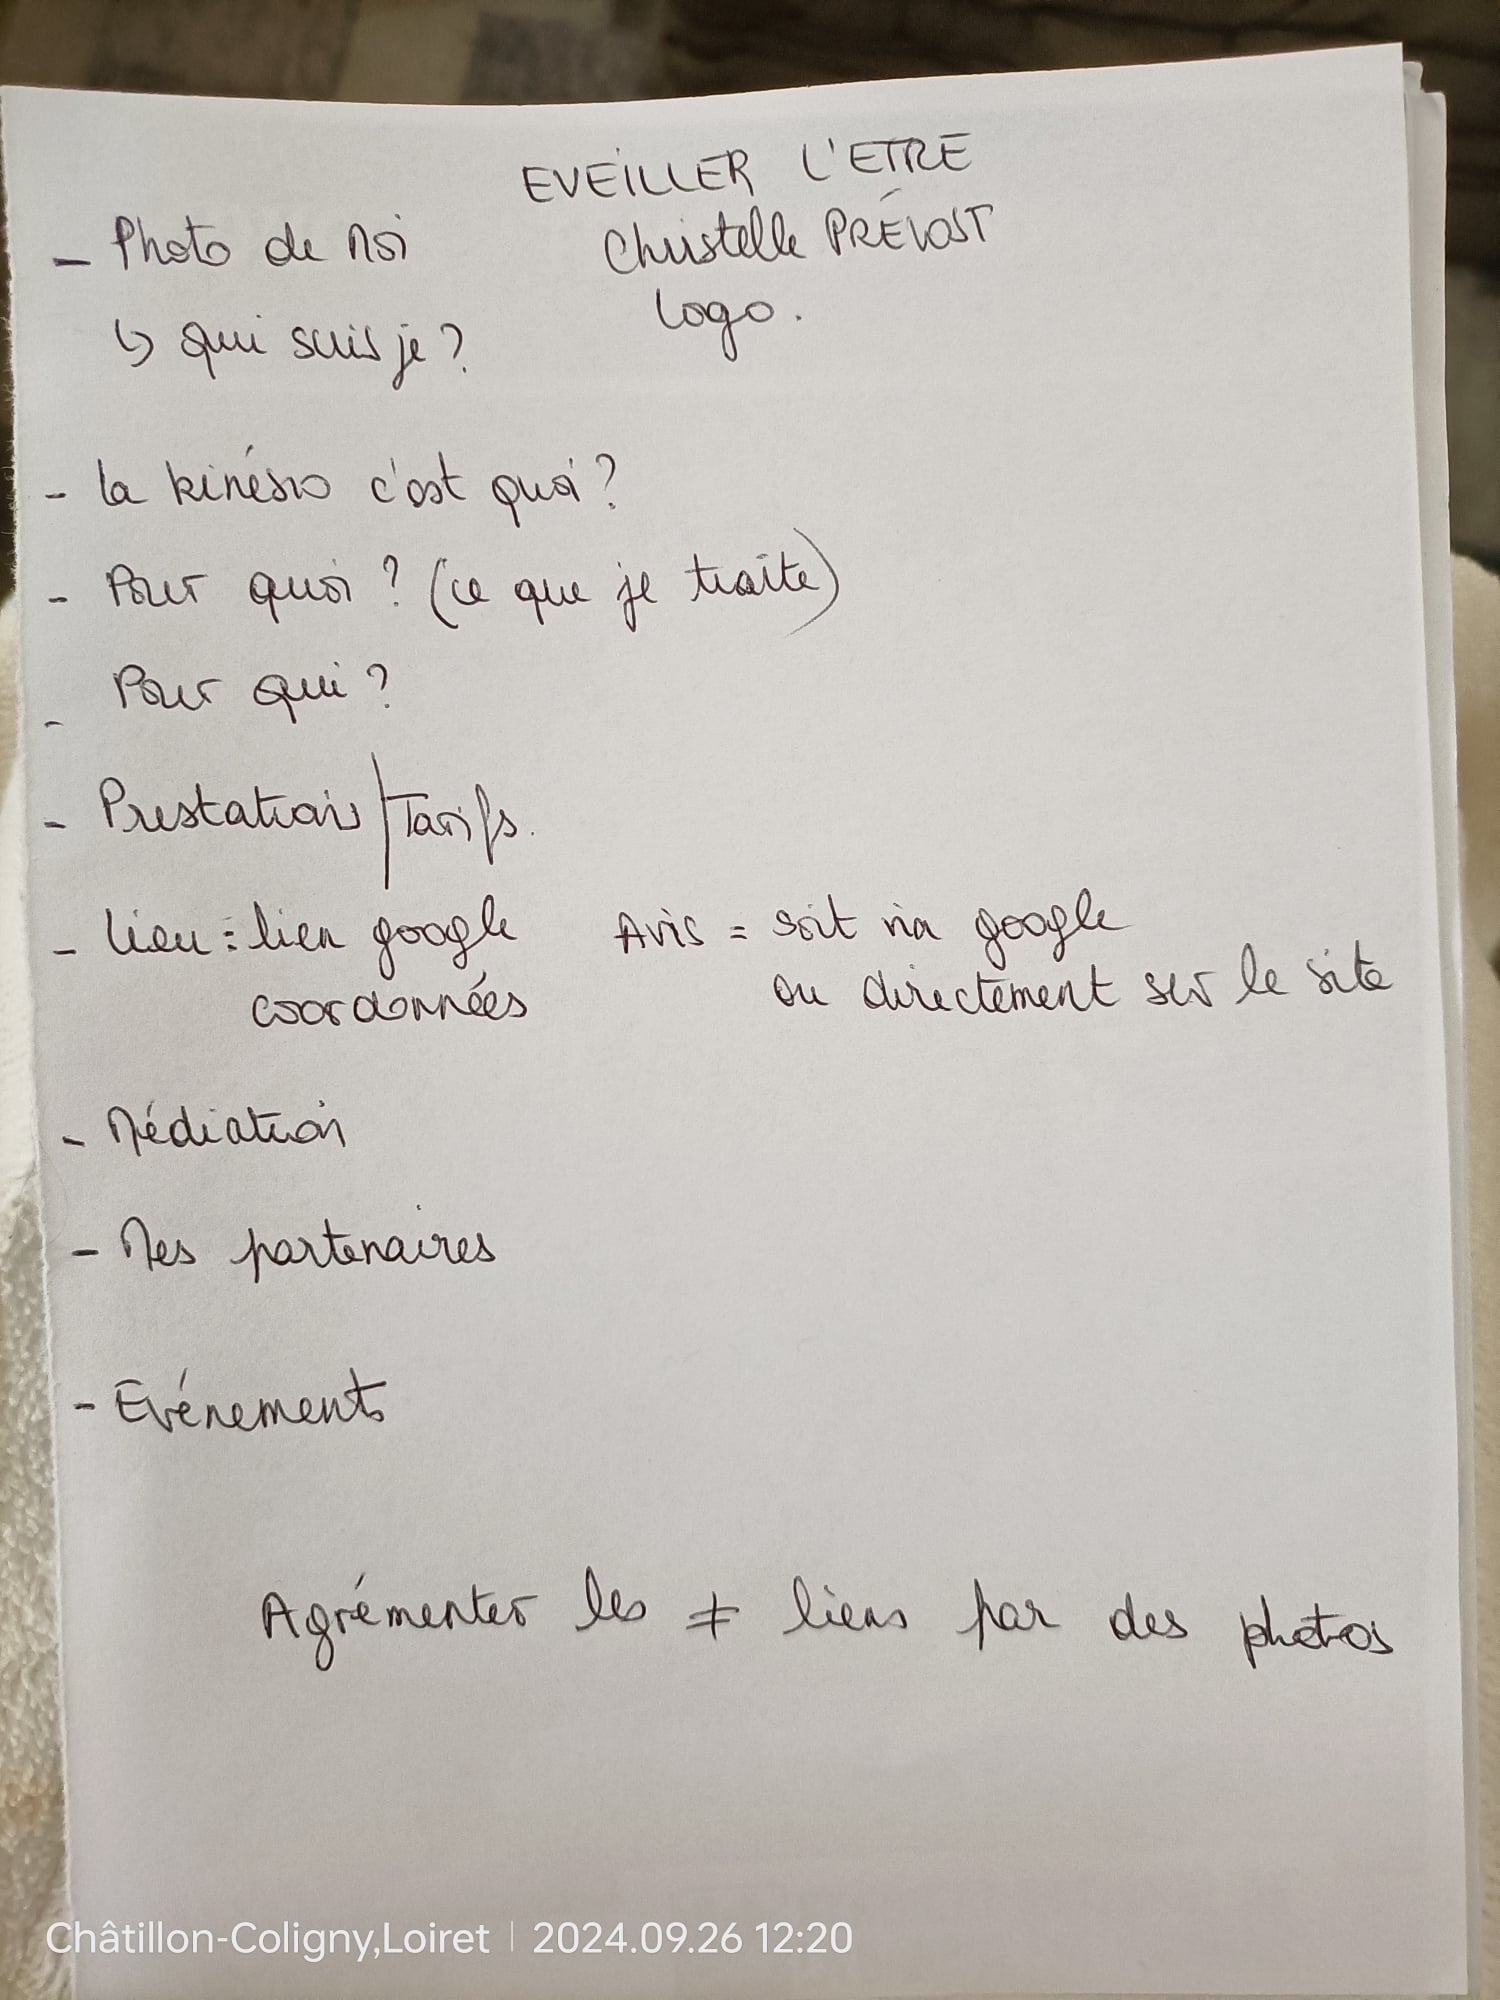 EVEILLER L'ETRE
- Photo de moi
Christelle PRÉVOST
↳ qui suis je ?
Logo.
- La kinésio c'est quoi ?
- Pour quoi ? (ce que je traite)
- Pour qui ?
- Prestations / Tarifs.
- Lieu = lien google
coordonnées
Avis = soit via google
ou directement sur le site
- Médiation
- Mes partenaires
- Evénements
Agrémenter les ≠ liens par des photos
Châtillon-Coligny,Loiret | 2024.09.26 12:20